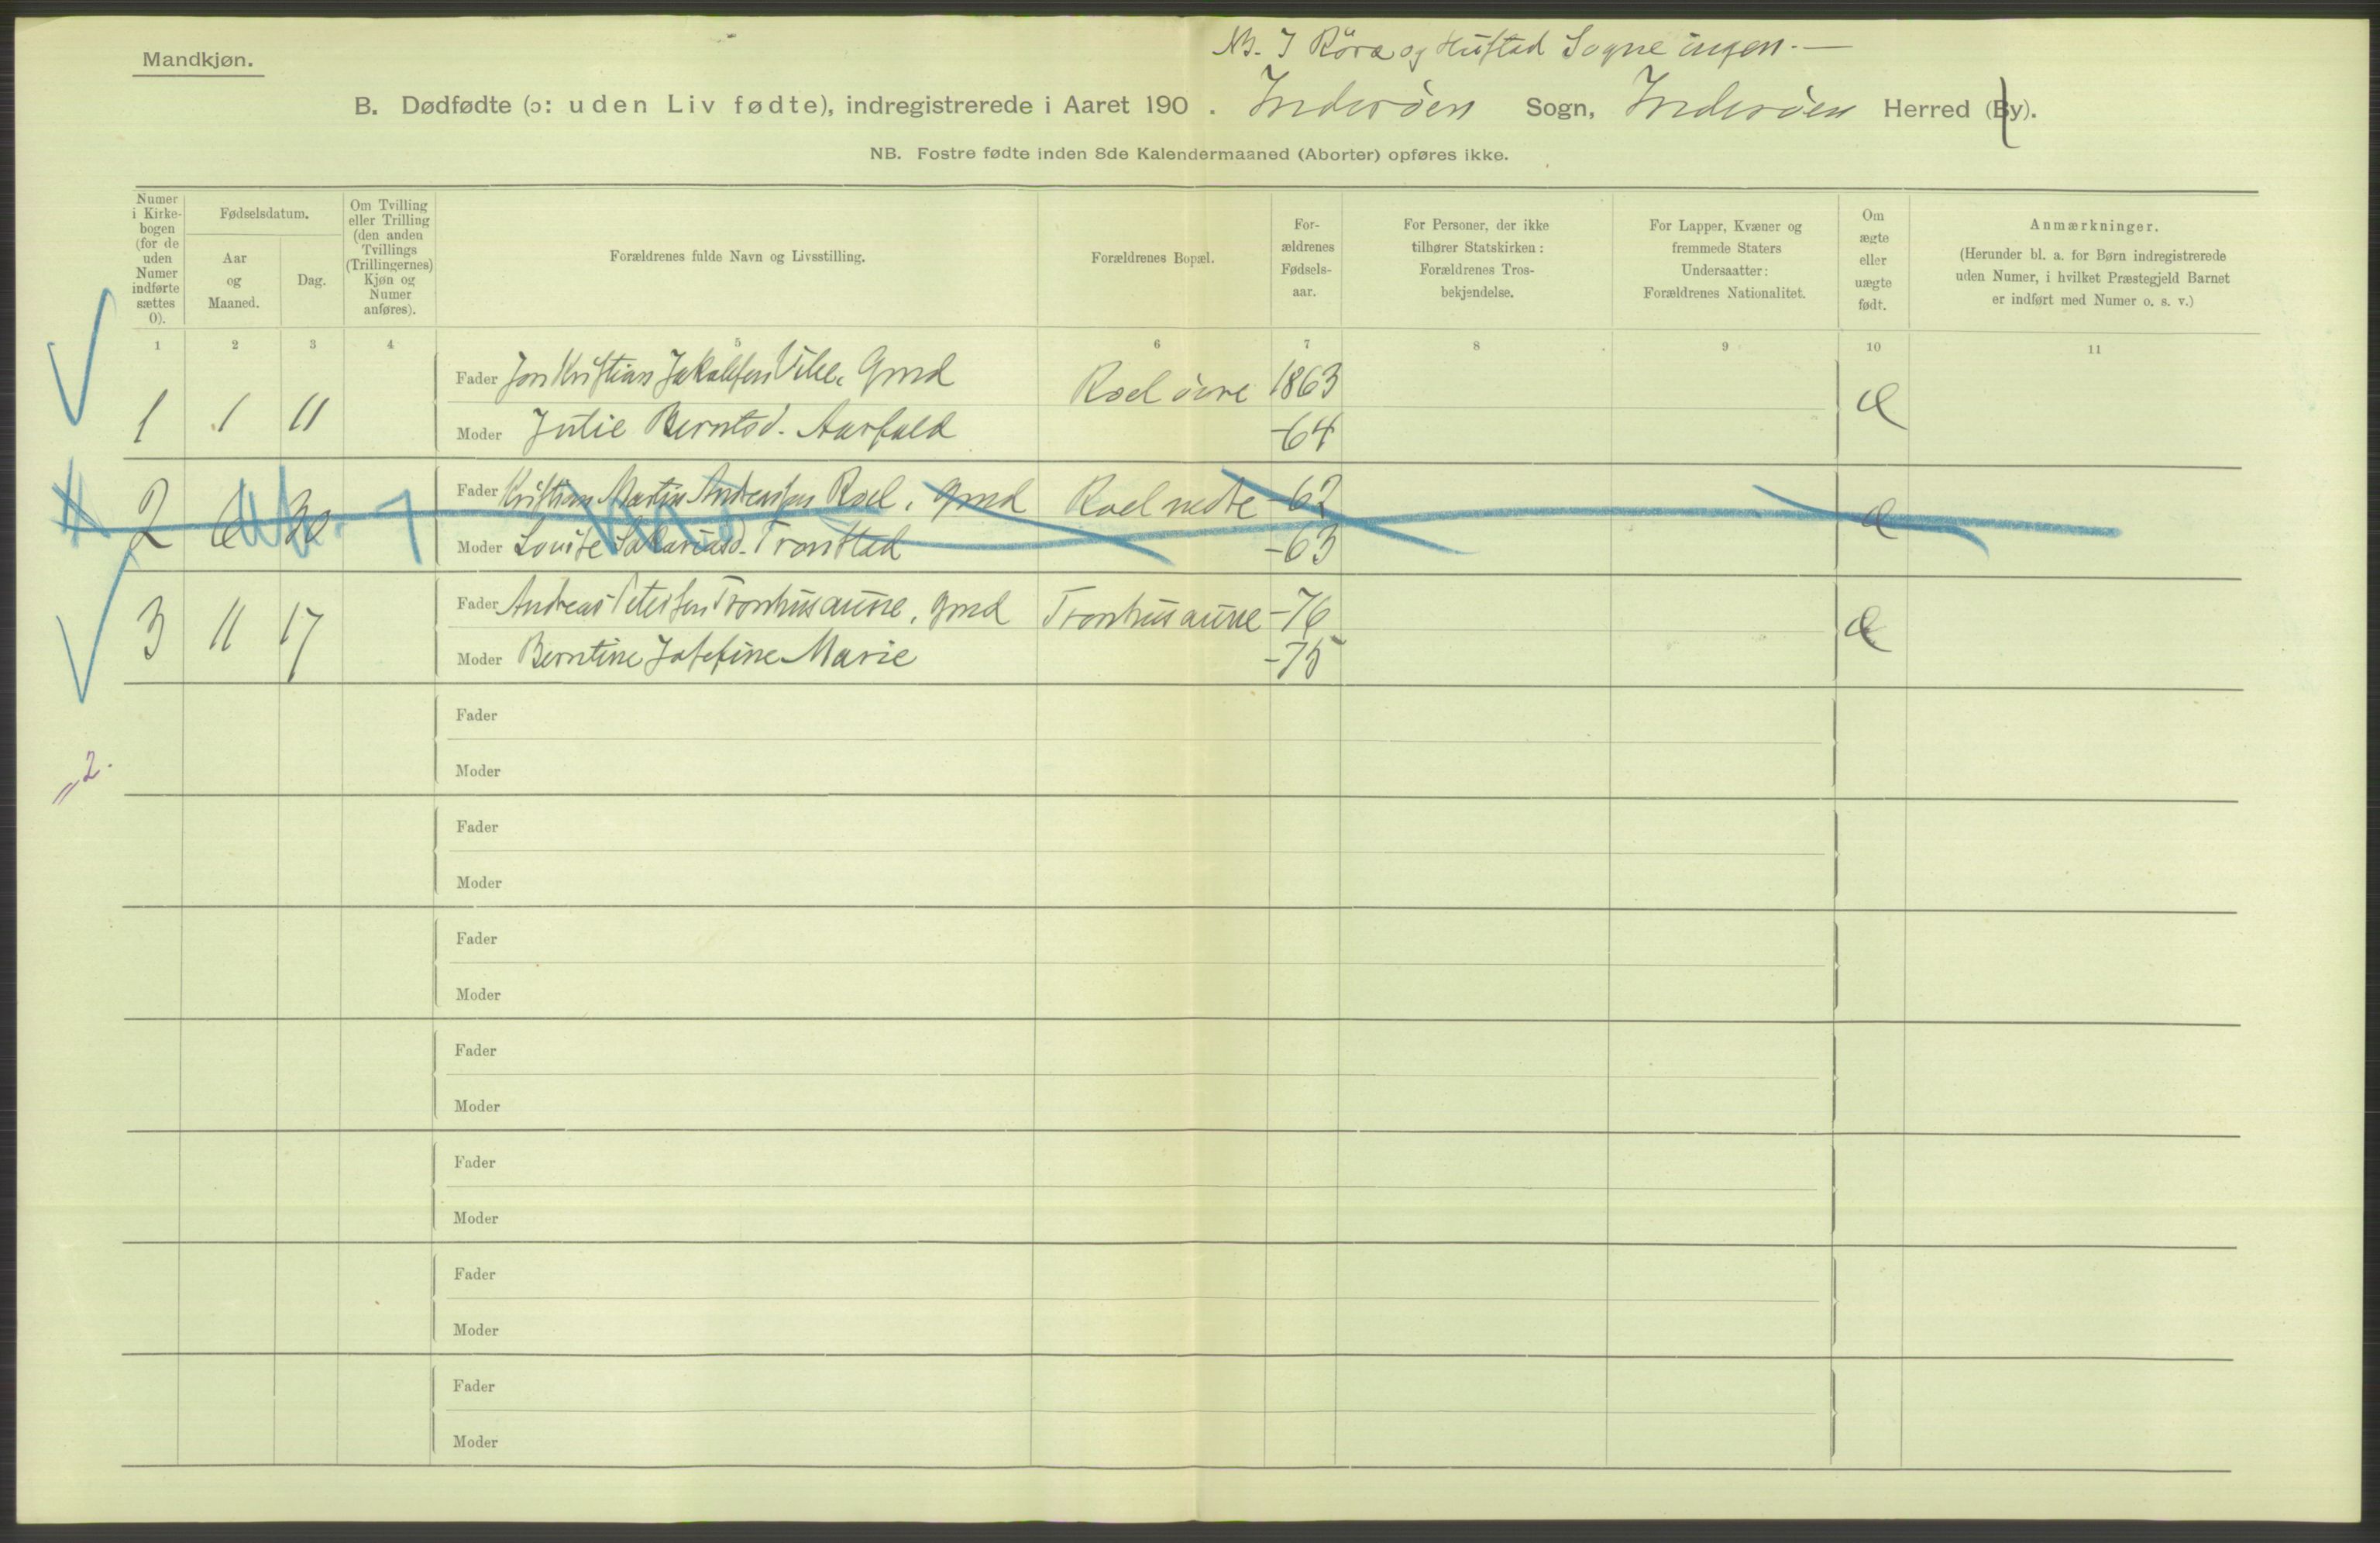 NB. I Röra og Hustad Sogne ingen. —
Mandkjøn.
B. Dødfødte (ɔ: uden Liv fødte), indregistrerede i Aaret 190 . Inderöen Sogn, Inderöen Herred (By).
NB. Fostre fødte inden 8de Kalendermaaned (Aborter) opføres ikke.
Numer i Kirke-bogen (for de uden Numer indførte sættes 0).
Fødselsdatum.
Aar og Maaned.
Dag.
Om Tvilling eller Trilling (den anden Tvillings (Trillingernes) Kjøn og Numer anføres).
Forældrenes fulde Navn og Livsstilling.
Forældrenes Bopæl.
For-ældrenes Fødsels-aar.
For Personer, der ikke tilhører Statskirken: Forældrenes Tros-bekjendelse.
For Lapper, Kvæner og fremmede Staters Undersaatter: Forældrenes Nationalitet.
Om ægte eller uægte født.
Anmærkninger.
(Herunder bl. a. for Børn indregistrerede uden Numer, i hvilket Præstegjeld Barnet er indført med Numer o. s. v.)
1 2 3 4 5 6 7 8 9 10 11
Fader Jon Kristian Gmd Roel övre 1863
1 1 11 Æ
Moder Julie Berntsd. -64
Fader Kristian Martin Andreassen Roel, Gmd Roel nedre -62
2 6 30 Æ
Moder Louise Sakariasd. Tronstad -63
Fader Andreas Petersen Tronhusaune, Gmd Tronhusaune -76
3 11 17 Æ
Moder Berntine Josefine Marie -75
Fader
2.
Moder
Fader
Moder
Fader
Moder
Fader
Moder
Fader
Moder
Fader
Moder
Fader
Moder